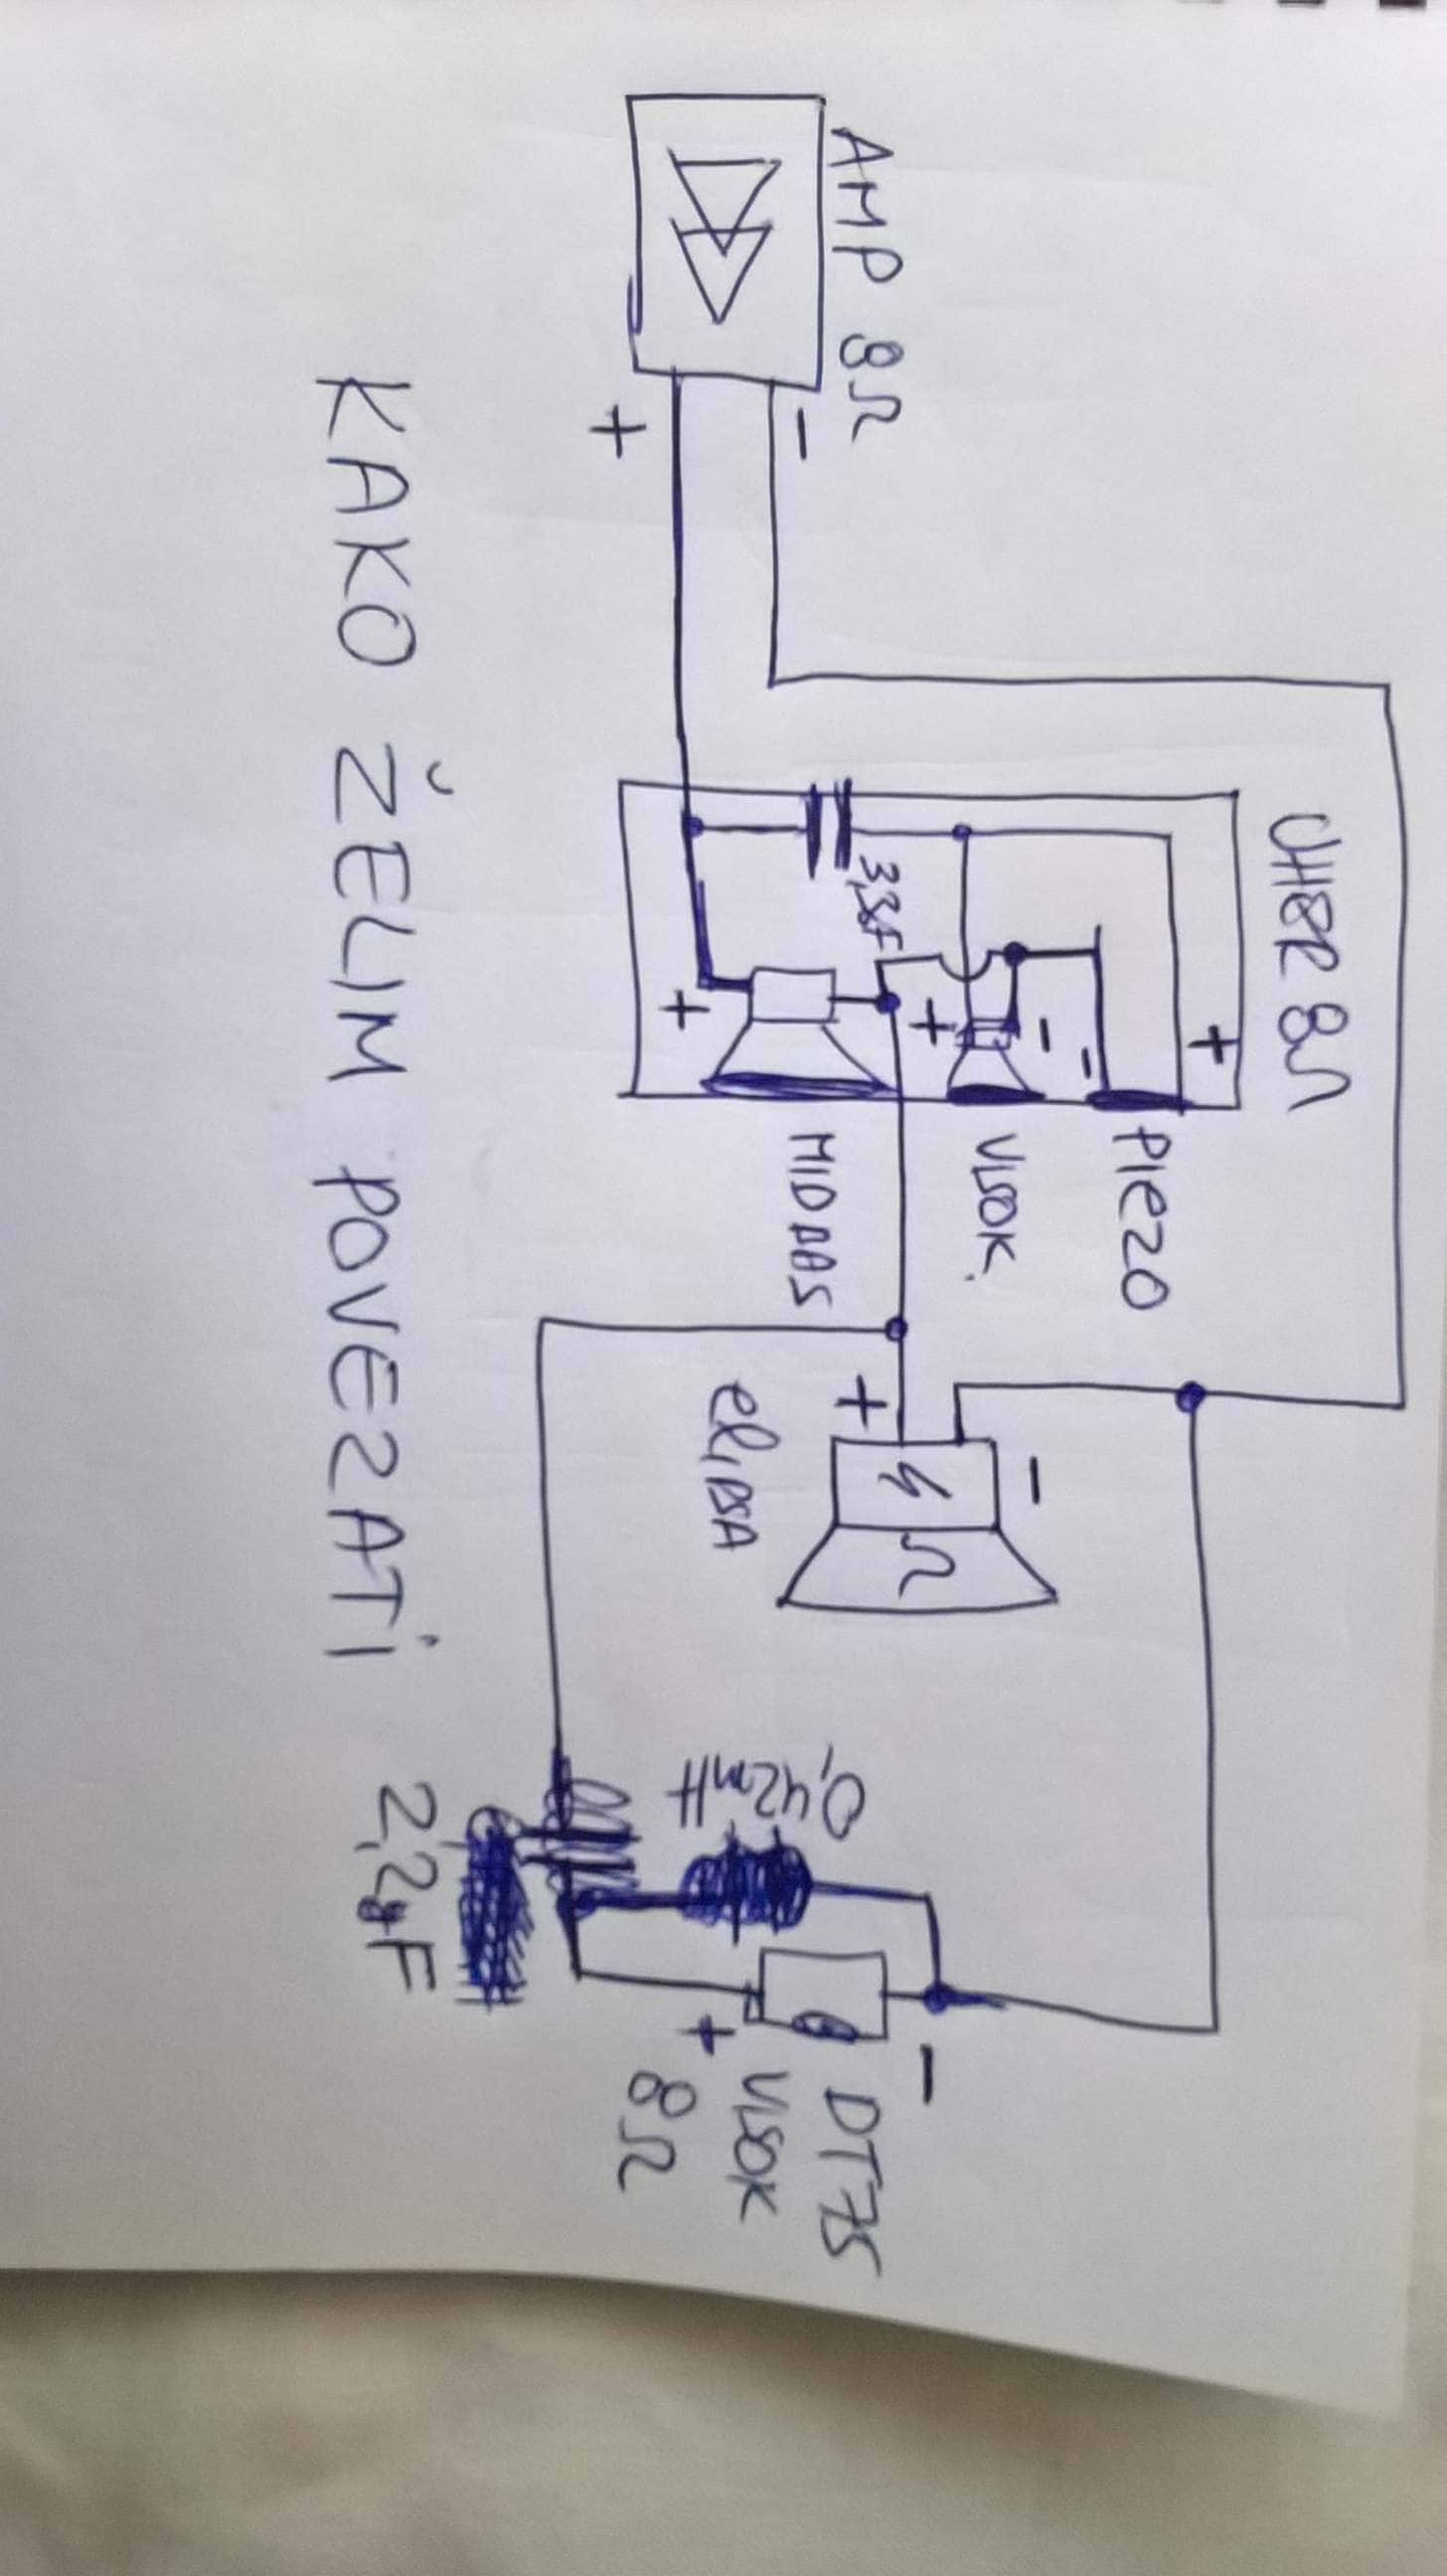 AMP 8Ω
-
+
UHER 8Ω
+
-
-
+
+
PIEZO
VISOK.
MIDBAS
+
-
4
Ω
elipsA
0,42mH
2,2µF
-
+
DT75
VISOK
8Ω
KAKO ŽELIM POVEZATi